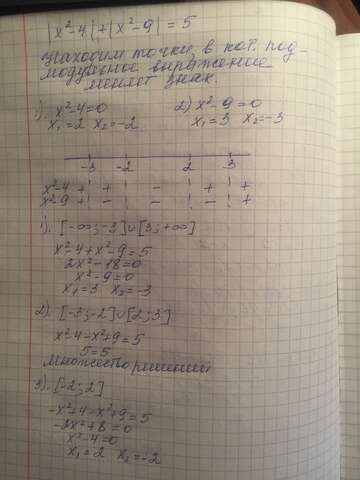 |x²-4|+|x²-9|=5
Находим точки, в кот. под-
модульное выражение
меняет знак.
1). x²-4=0 2) x²-9=0
x₁=2 x₂=-2 x₁=3 x₂=-3
-3 -2 2 3
x²-4 + + - + +
x²-9 + - - - +
1). [-∞;-3]∪[3;+∞]
x²-4+x²-9=5
2x²-18=0
x²-9=0
x₁=3 x₂=-3
2). [-3;-2]∪[2;3]
x²-4-x²+9=5
5=5
множество решений
3). [-2;2]
-x²+4-x²+9=5
-2x²+8=0
x²-4=0
x₁=2 x₂=-2